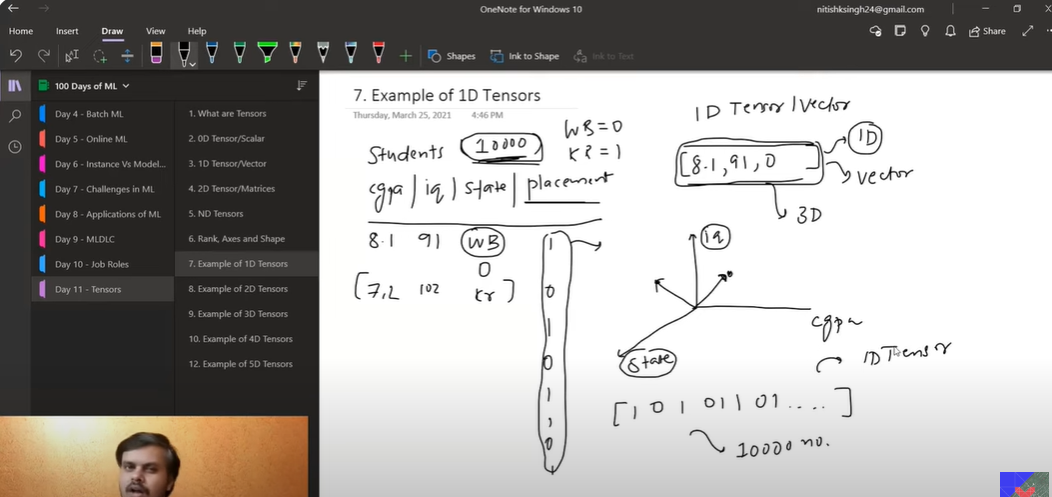 OneNote for Windows 10
nitishksingh24@gmail.com
Home Insert Draw View Help
Share
Shapes Ink to Shape Ink to Text
100 Days of ML
Day 4 - Batch ML
Day 5 - Online ML
Day 6 - Instance Vs Model...
Day 7 - Challenges in ML
Day 8 - Applications of ML
Day 9 - MLDLC
Day 10 - Job Roles
Day 11 - Tensors
1. What are Tensors
2. 0D Tensor/Scalar
3. 1D Tensor/Vector
4. 2D Tensor/Matrices
5. ND Tensors
6. Rank, Axes and Shape
7. Example of 1D Tensors
8. Example of 2D Tensors
9. Example of 3D Tensors
10. Example of 4D Tensors
12. Example of 5D Tensors
7. Example of 1D Tensors
Thursday, March 25, 2021 4:46 PM
Students 10000
WB=0
KR=1
cgpa | iq | state | placement
8.1 91 WB 1
0
[7.2 102 Kr] 0
1
0
1
1
0
1D Tensor/Vector
[8.1, 91, 0 ]
1D
vector
3D
iq
cgpa
State
1D Tensor
[1 0 1 01101.... ]
10000 no.